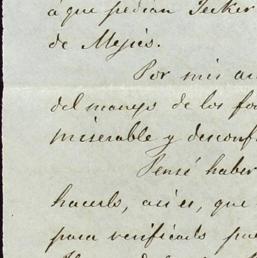 á que pedian Jecker
de Mejico.
Por mis
del manejo de los fo
miserable y desconf
Pensé haber
hacerlo, asi es, que
para verificarlo pu